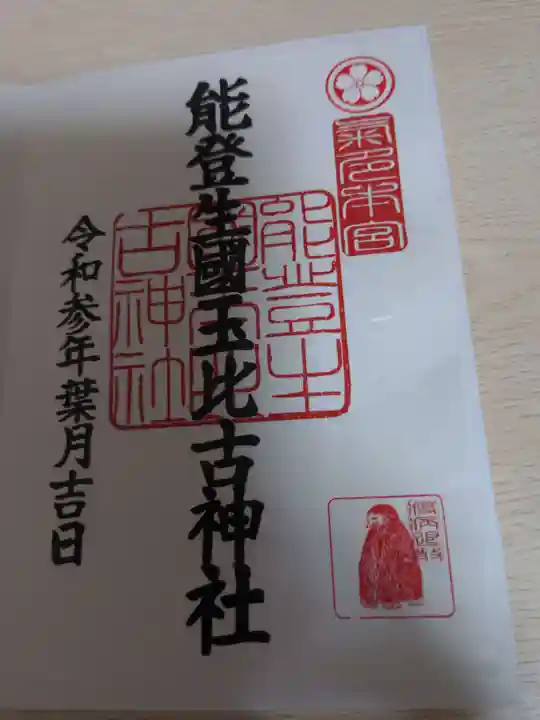 氣多本宮
能登生國玉比古神社
能登生
國玉比
古神社
令和参年葉月吉日